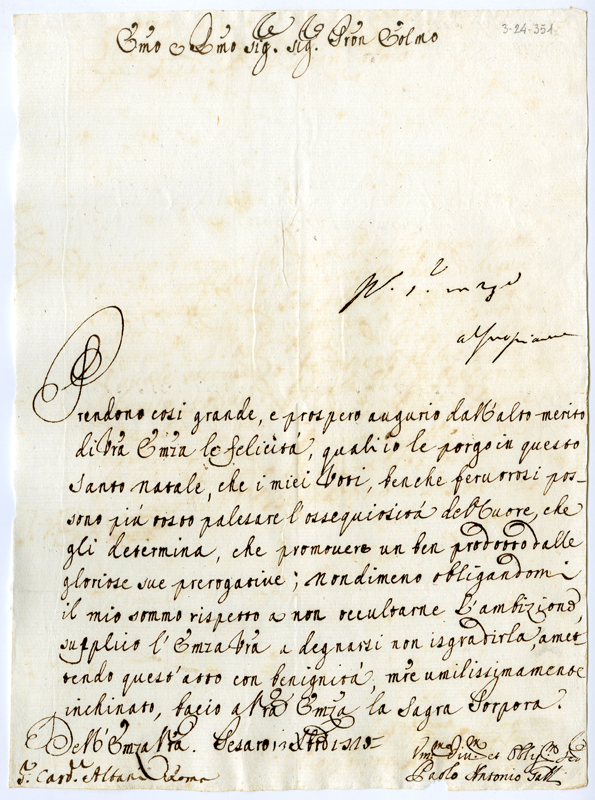 Emo e Rmo Sig.re Sig.re Pron Colmo
3-24-351
Prendono così grande, e prospero augurio dall'alto merito
di Vrã Emza le felicità, quali io le porgo in questo
santo natale, che i miei Voti, benche feruorosi pos-
sono più tosto palesare l'ossequiosità del Cuore, che
gli determina, che promouere un ben prodotto dalle
gloriose sue prerogatiue; Nondimeno obligandomi
il mio sommo rispetto a non occultarne l'ambizione,
supplico l'Emza Vrã a degnarsi non isgradirla, amet-
tendo quest'atto con benignità, mẽre umilissimamente
inchinato, bacio a Vrã Emza la Sagra Porpora.
Dell'Emza Vrã. Pesaro
S.r Card.l Albani Roma
Paolo Antonio